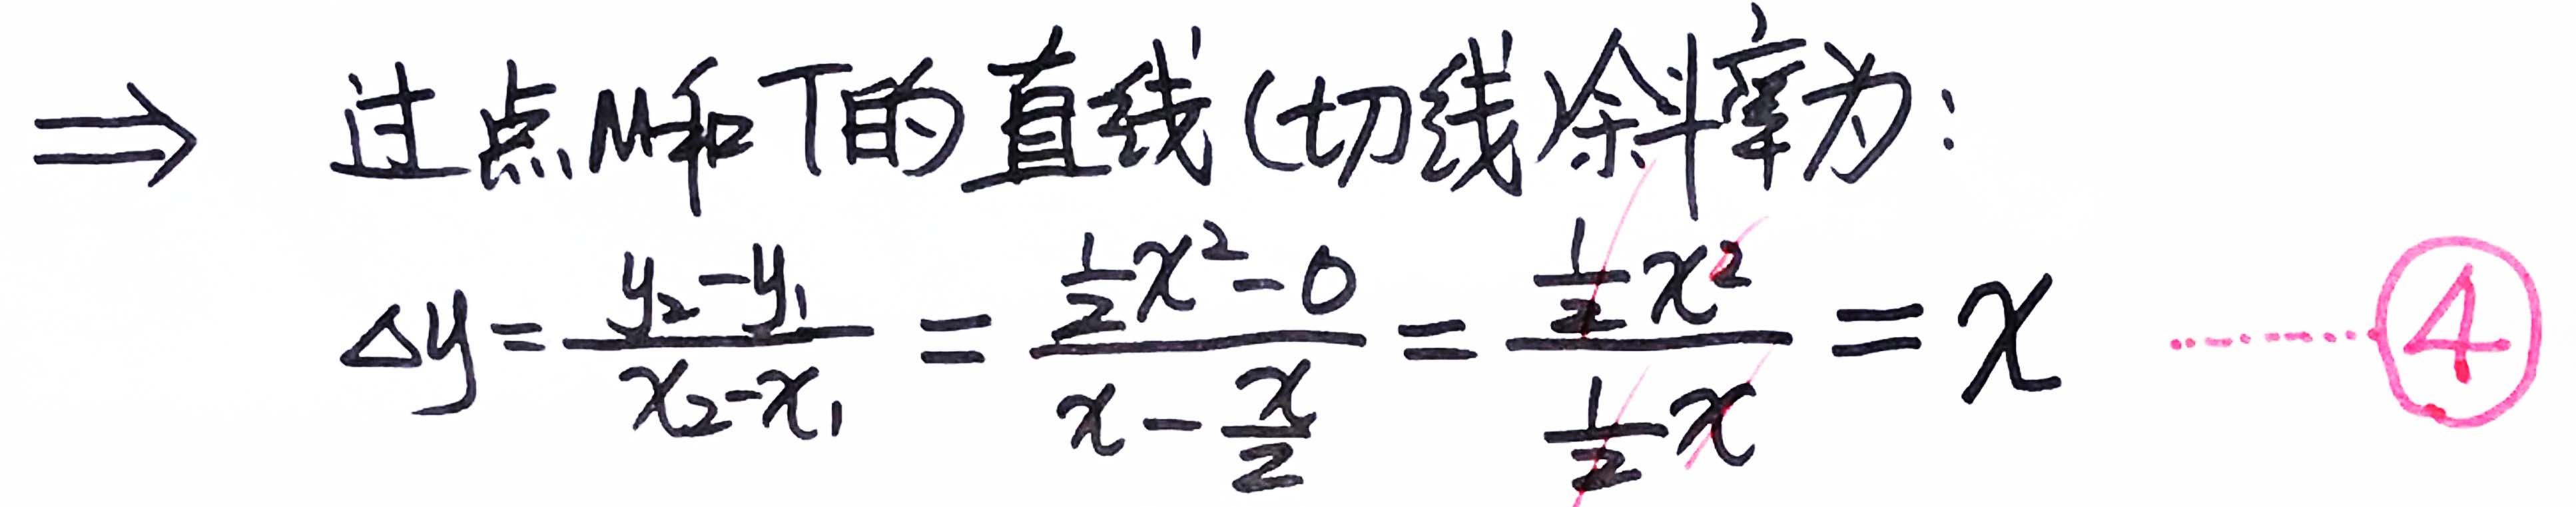 ⇒ 过点M和T的直线(切线)斜率为:
Δy = (y₂-y₁)/(x₂-x₁) = (½x²-0)/(x-x/2) = (½x²)/(½x) = x ······④